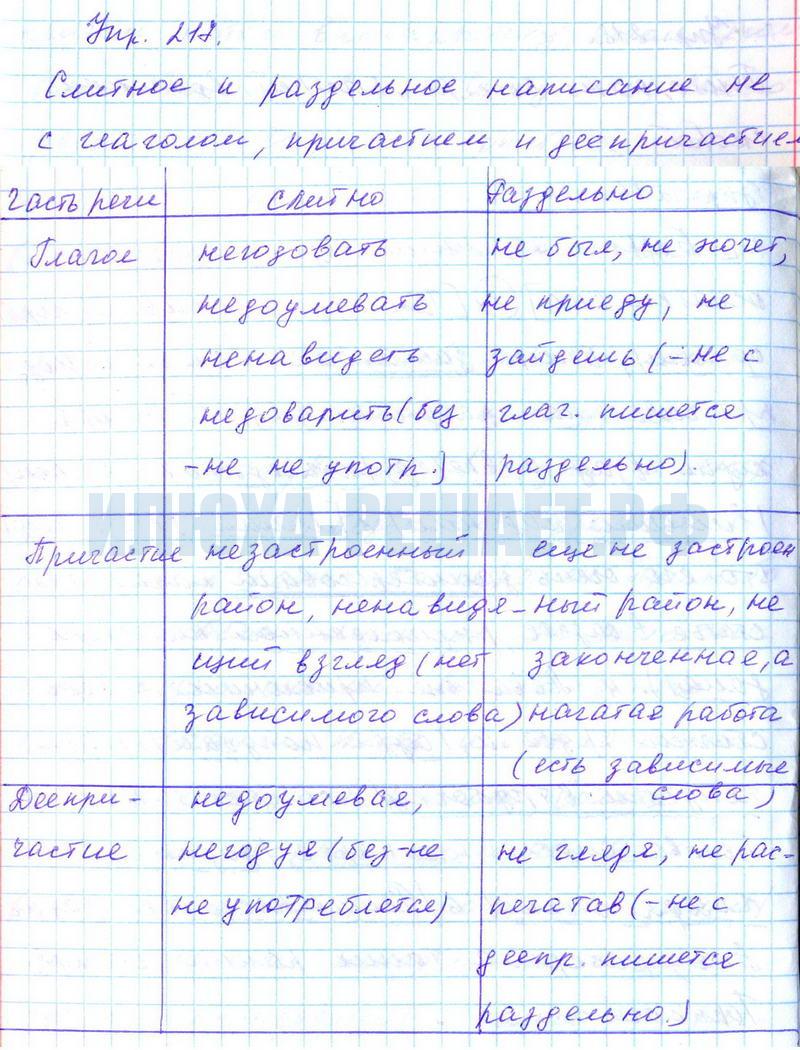 Упр. 217.
Слитное и раздельное написание не
с глаголом, причастием и деепричастием
Часть речи слитно Раздельно
Глагол негодовать не был, не хочет,
недоумевать не приеду, не
ненавидеть зайдешь (-не с
недоварить (без глаг. пишется
-не не употр.) раздельно).
ИЛЮХА-РЕШАЕТ.РФ
Причастие незастроенный еще не застроен
район, ненавидя- ный район, не
щий взгляд (нет законченная, а
зависимого слова) начатая работа
(есть зависимые
Деепри- недоумевая, слова)
частие негодуя (без -не не глядя, не рас-
не употребляется) печатав (-не с
деепр. пишется
раздельно.)